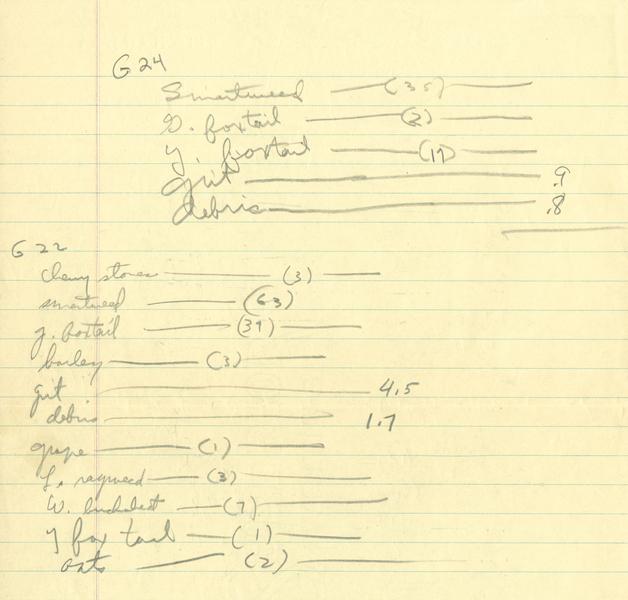 G 24
Smartweed — (35) —
G. foxtail — (2) —
Y. foxtail — (17) —
grit — .9
debris — .8
G 22
cherry stones — (3) —
smartweed — (63)
y. foxtail — (39) —
barley — (3) —
grit — 4.5
debris — 1.7
grape — (1) —
L. ragweed — (3) —
W. buckwheat — (7) —
y fox tail — (1) —
oats — (2) —